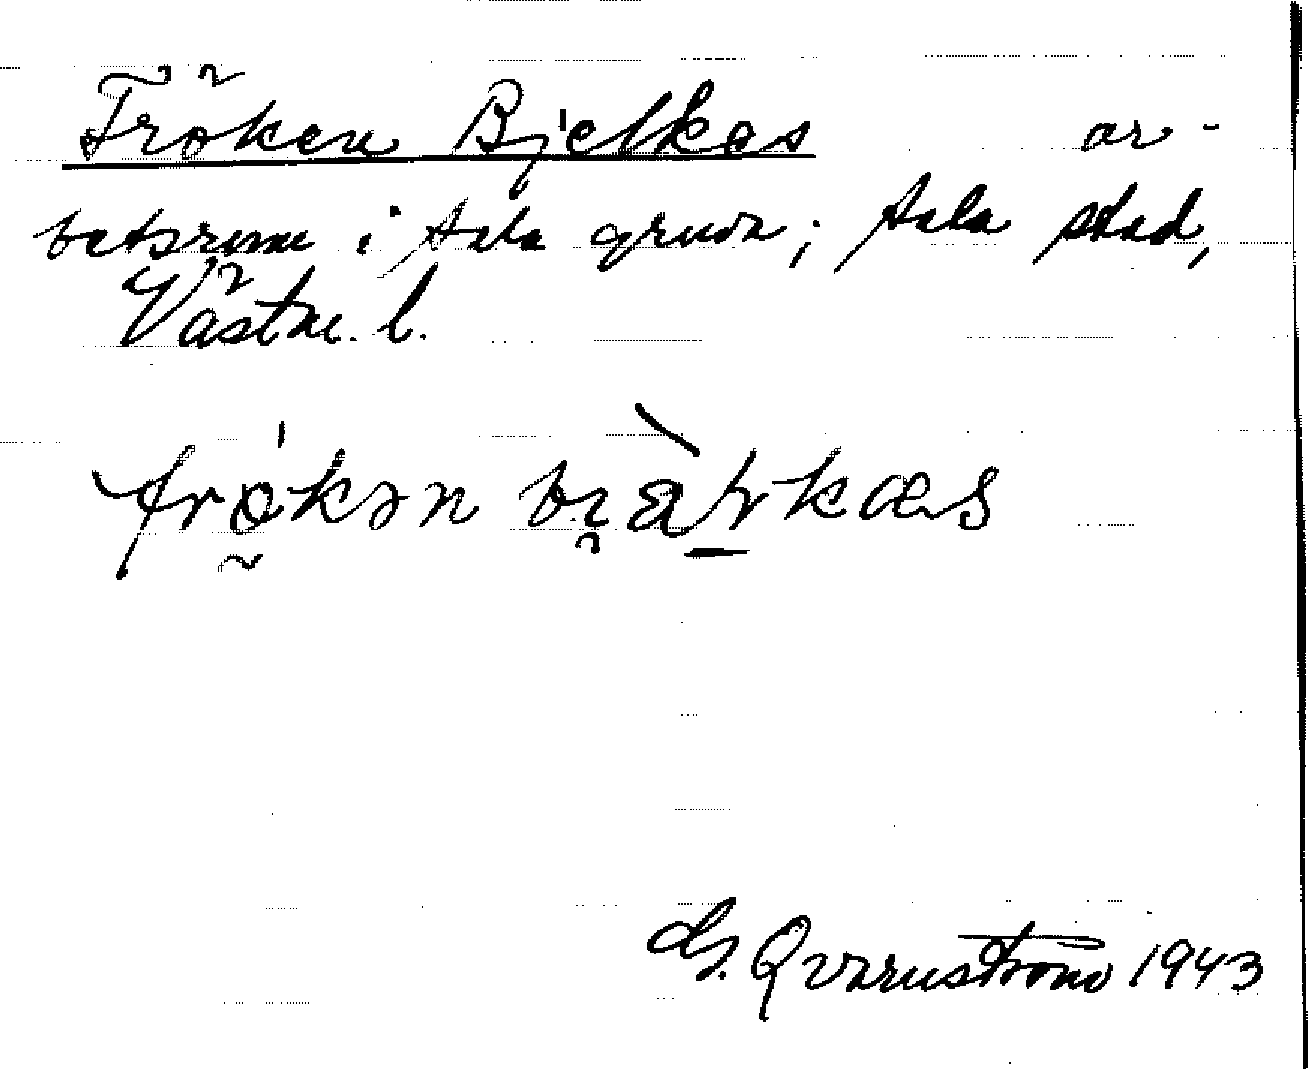 Fröken Bjelkes ar-
betsrum i Sala gruva; Sala stad,
Västm. l.
frökən bi̯àɽkæs
G. Qvarnström 1943